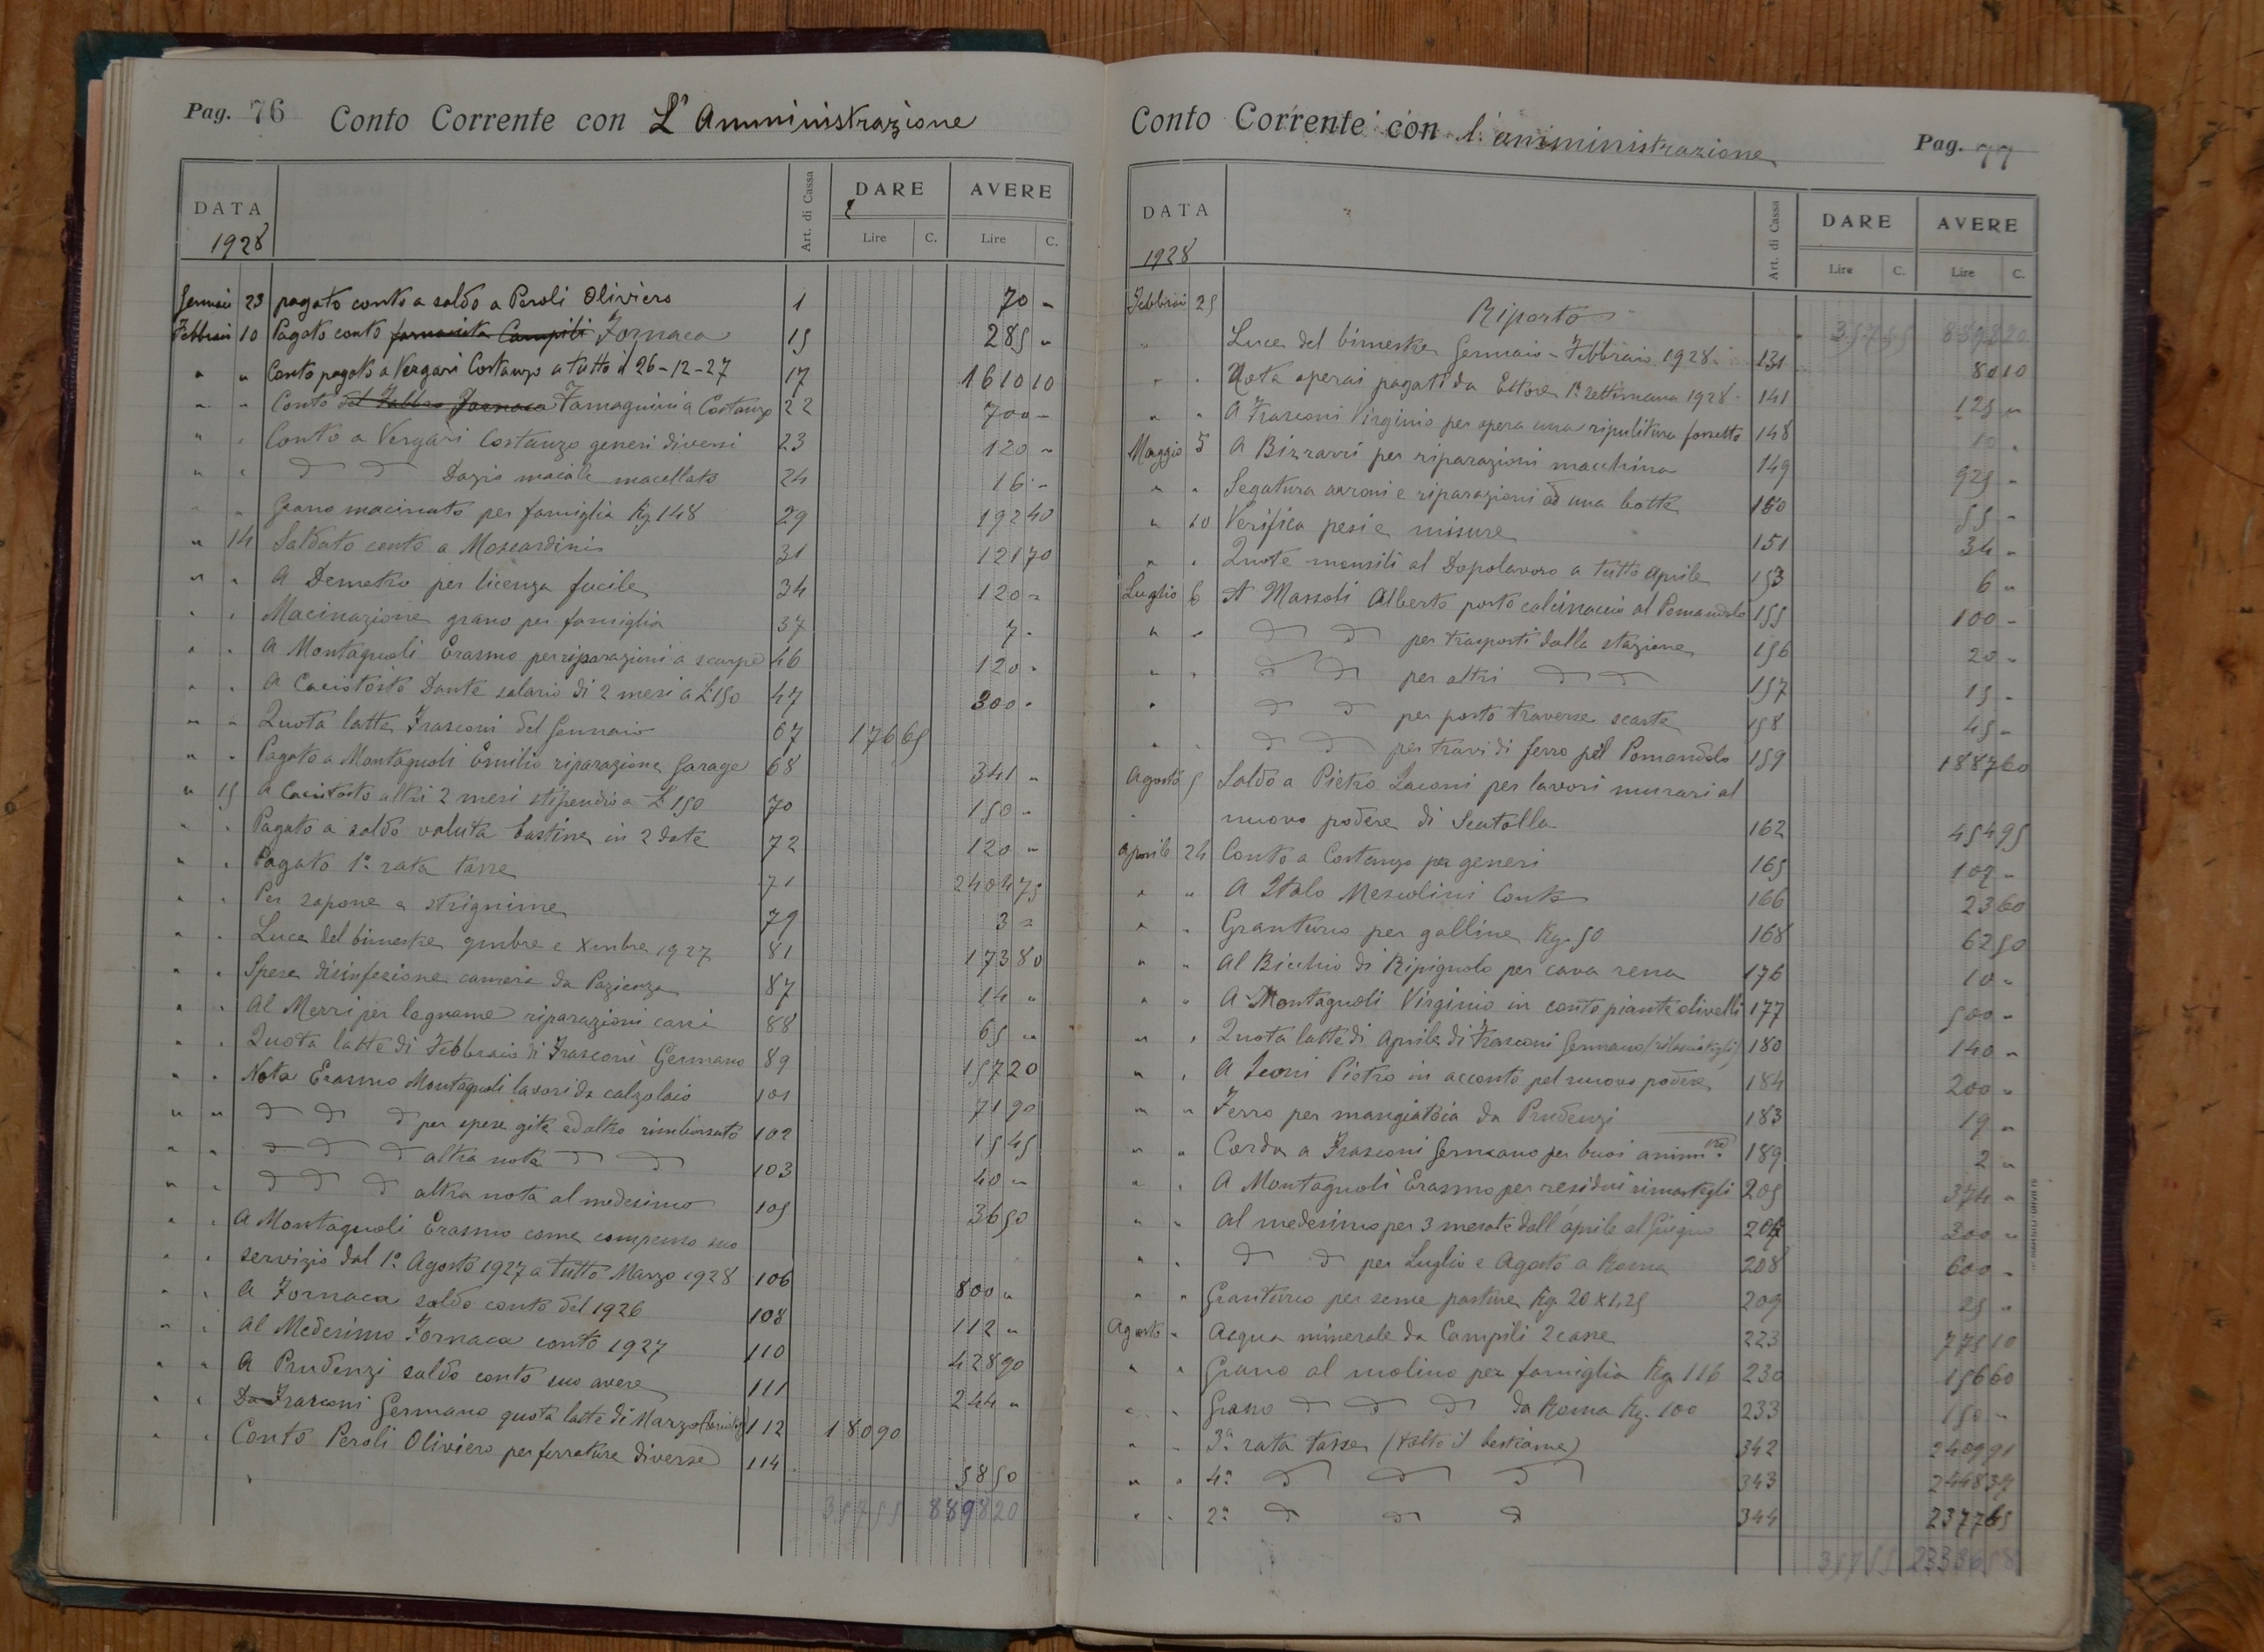 Pag. 76 Conto Corrente con L' Amministrazione
DATA Art. di Cassa DARE AVERE
1928 Lire C. Lire C.
Gennaio 23 pagato conto a saldo a Peroli Oliviero 1 70 -
Febbraio 10 Pagato conto Fornaca 15 285 "
" " Conto pagato a Vergari Costanzo a tutto il 26-12-27 17 1610 10
" " Conto Costanzo 22 700 -
" " Conto a Vergari Costanzo generi diversi 23 120 -
" " Dazio maiale macellato 24 16 -
" " Grano macinato per famiglia Kg 148 29 192 40
" 14 Saldato conto a Moscardini 31 121 70
" " A Demetro per licenza fucile 34 120 -
" " Macinazione grano per famiglia 37 7 -
" " A Montagnoli Erasmo per riparazioni a scarpe 46 120 -
" " A Caciotosto Dante salario di 2 mesi a L. 150 47 300 -
" " Quota latte Frasconi del Gennaio 67 176 65
" " Pagato a Montagnoli Emilio riparazione Garage 68 341 "
" 15 A altri 2 mesi stipendio a L 150 70 150 -
" " Pagato a saldo valuta bastine in 2 date 72 120 "
" " Pagato 1ª rata tasse 71 2404 75
" " Per sapone a 79 3 -
" " Luce del bimestre 9mbre e Xmbre 1927 81 173 80
" " Spese disinfezione camera da Pazienza 87 14 "
" " Al Merri per legname riparazioni carri 88 65 "
" " Quota latte di Febbraio di Frasconi Germano 89 157 20
" " Nota Erasmo Montagnoli lavori da calzolaio 101 71 90
" " per spese gite ed altro rimborsato 102 15 45
" " altra nota 103 40 "
" " altra nota al medesimo 105 36 50
" " A Montagnoli Erasmo come compenso suo
" " servizio dal 1º Agosto 1927 a tutto Marzo 1928 106 800 "
" " A Fornaca saldo conto del 1926 108 112 "
" " Al Medesimo Fornaca conto 1927 110 428 90
" " A Prudenzi saldo conto suo avere 111 244 "
" " Da Frasconi Germano quota latte di Marzo 112 180 90
" " Conto Peroli Oliviero per ferrature diverse 114 58 50
357 55 8898 20
Conto Corrente con l'amministrazione Pag. 77
DATA Art. di Cassa DARE AVERE
1928 Lire C. Lire C.
Febbraio 25 Riporto 357 55 8898 20
" Luce del bimestre Gennaio - Febbraio 1928 131 80 10
" " Nota operai pagati da Ettore 1ª settimana 1928 141 125 "
" " A Frasconi Virginio per opera una ripulitura fossetto 148 10 "
Maggio 5 A Bizzarri per riparazioni macchina 149 925 "
" " Segatura e riparazioni ad una botte 150 55 "
" 10 Verifica pesi e misure 151 34 "
" " Quote mensili al Dopolavoro a tutto Aprile 153 6 "
Luglio 6 A Massoli Alberto porto calcinaccio al Pomandolo 155 100 -
" " per trasporti dalla stazione 156 20 "
" " per altri 157 15 -
" per porto traverse scarte 158 45 "
" " per travi di ferro pel Pomandolo 159 1887 60
Agosto 5 Saldo a Pietro per lavori murari al
" nuovo podere di Scatolla 162 454 95
Aprile 24 Conto a Costanzo per generi 165 107 "
" " A Italo Mescolini Conto 166 23 60
" " Granturco per galline Kg. 50 168 62 50
" " Al Bicchio di Ripignolo per cava rena 176 10 -
" " A Montagnoli Virginio in conto piante olivelli 177 500 -
" " Quota latte di Aprile di Frasconi Germano 180 140 "
" " A Leoni Pietro in acconto pel nuovo podere 184 200 "
" " Ferro per mangiatoia da Prudenzi 183 19 "
" " Corda a Frasconi Germano per buoi 189 2 "
" " A Montagnoli Erasmo per residui rimastegli 205 374 "
" " Al medesimo per 3 mesate dall'aprile al Giugno 207 300 "
" " per Luglio e Agosto a Roma 208 600 -
" " Granturco per seme pasture Kg. 20 x 1,25 209 25 "
Agosto " Acqua minerale da Campili 2 casse 223 775 10
" " Grano al molino per famiglia Kg. 116 230 156 60
" " Grano da Roma Kg. 100 233 150 "
" " 3ª rata tasse (tolto il bestiame) 342 2409 91
" " 4ª 343 2448 37
" " 2ª 344 2377 65
357 55 23336 58